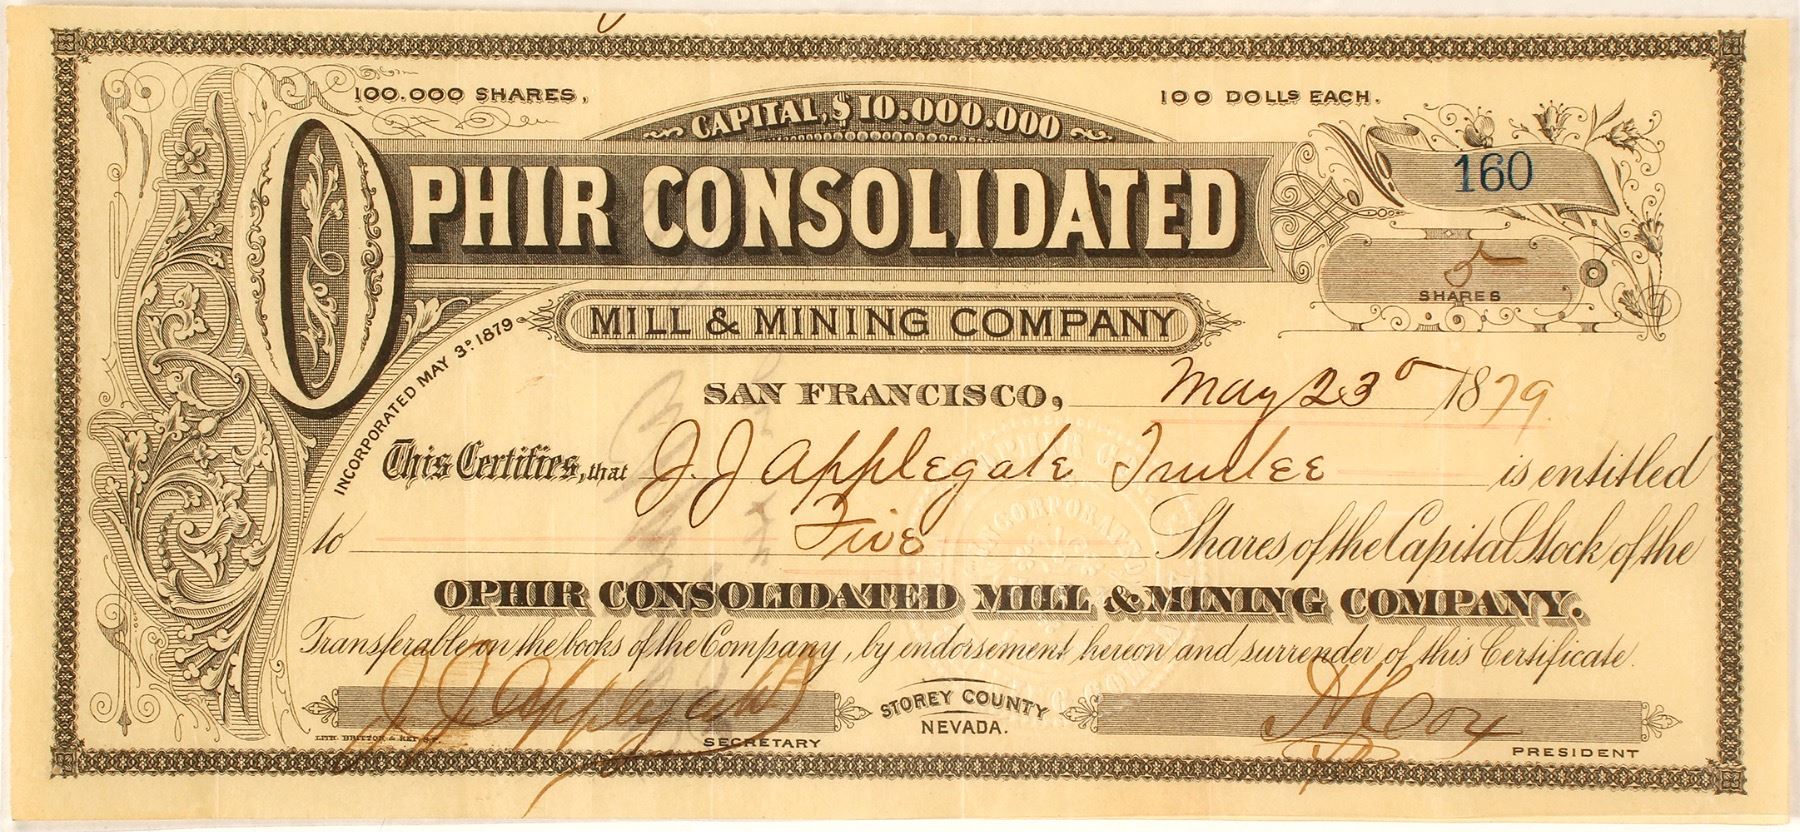 100.000 SHARES,
CAPITAL, $10.000.000
100 DOLLS EACH.
OPHIR CONSOLIDATED
160
5
SHARES
MILL & MINING COMPANY
INCORPORATED MAY 3º 1879
SAN FRANCISCO, May 23º 1879
This Certifies, that J. J. Applegate Trustee is entitled
to Five Shares of the Capital Stock of the
OPHIR CONSOLIDATED MILL & MINING COMPANY.
Transferable on the books of the Company, by endorsement hereon and surrender of this Certificate.
J. J. Applegate
SECRETARY
STOREY COUNTY
NEVADA.
Cox
PRESIDENT
LITH. BRITTON & REY S.F.
INCORPORATED